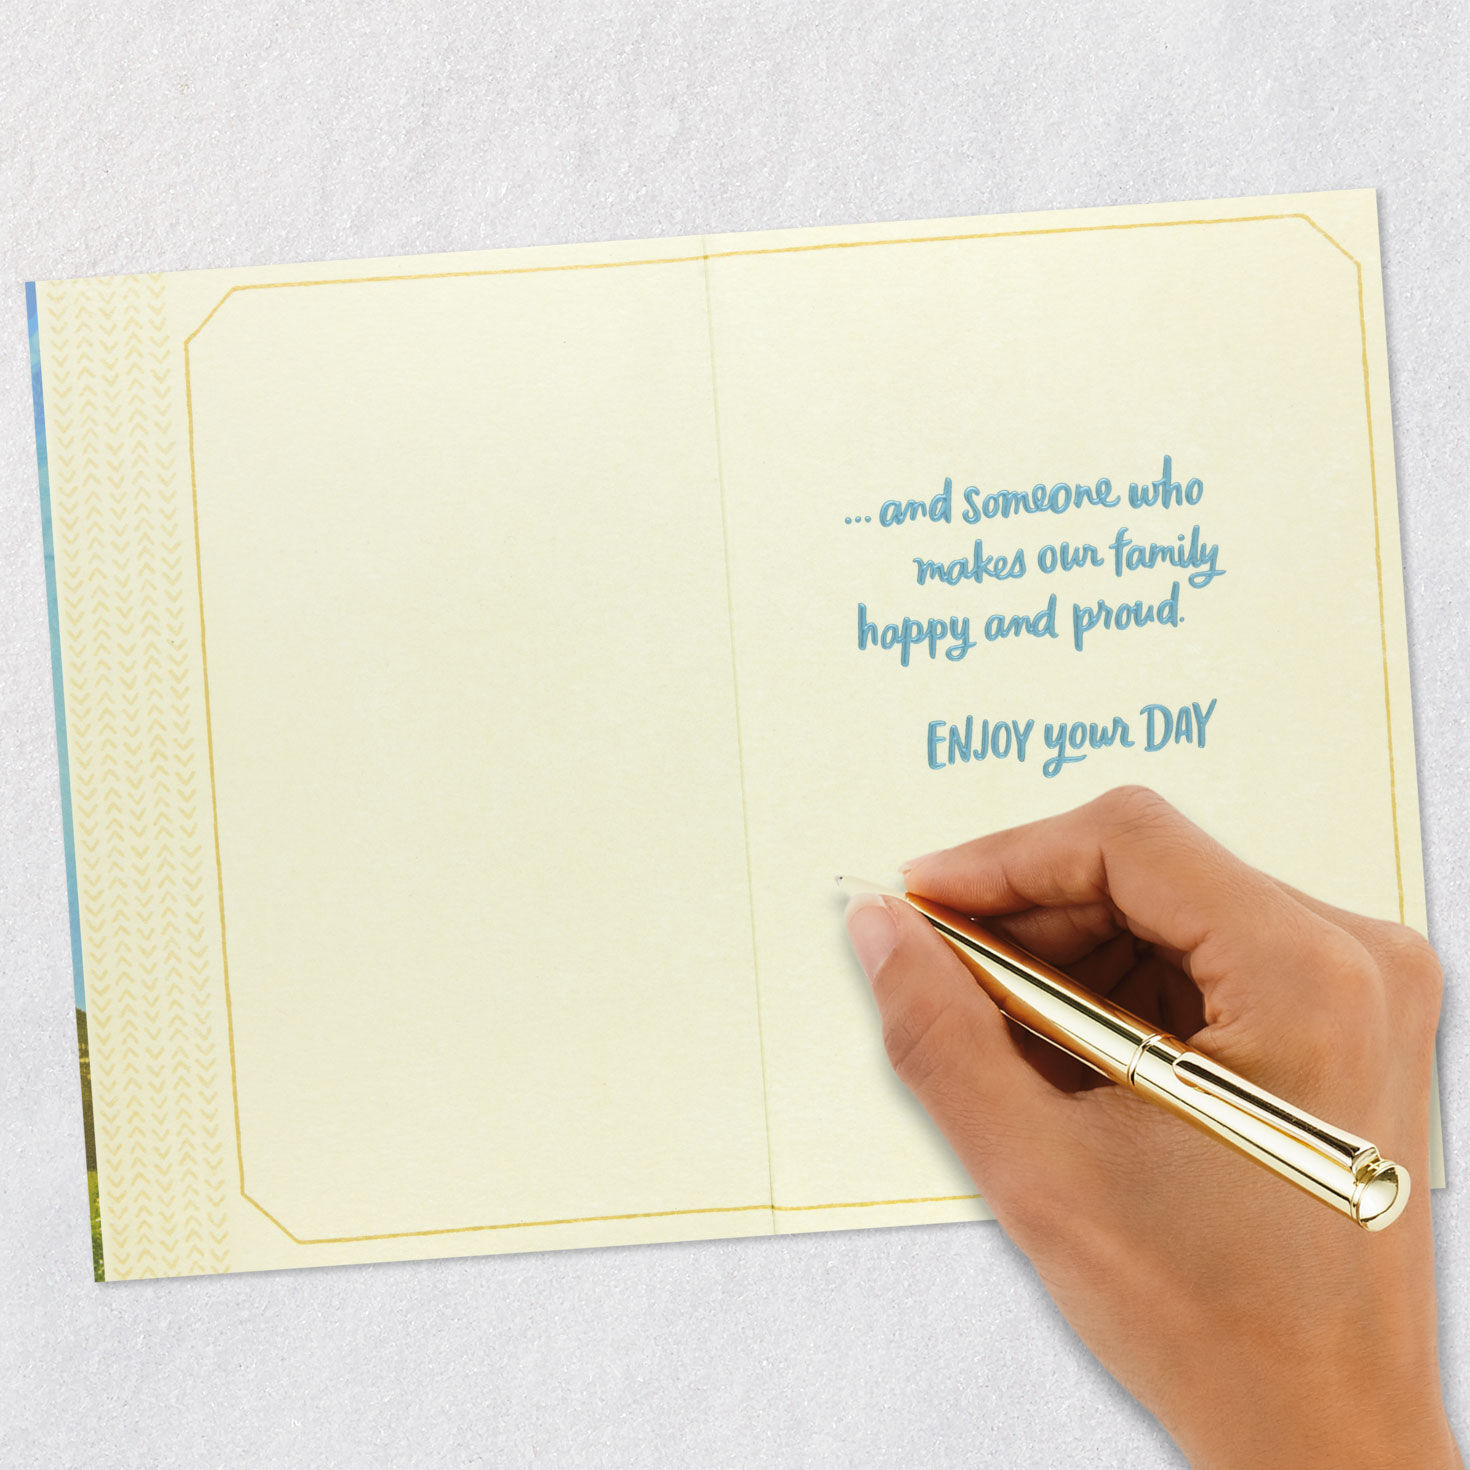 ...and someone who
makes our family
happy and proud.
ENJOY your DAY